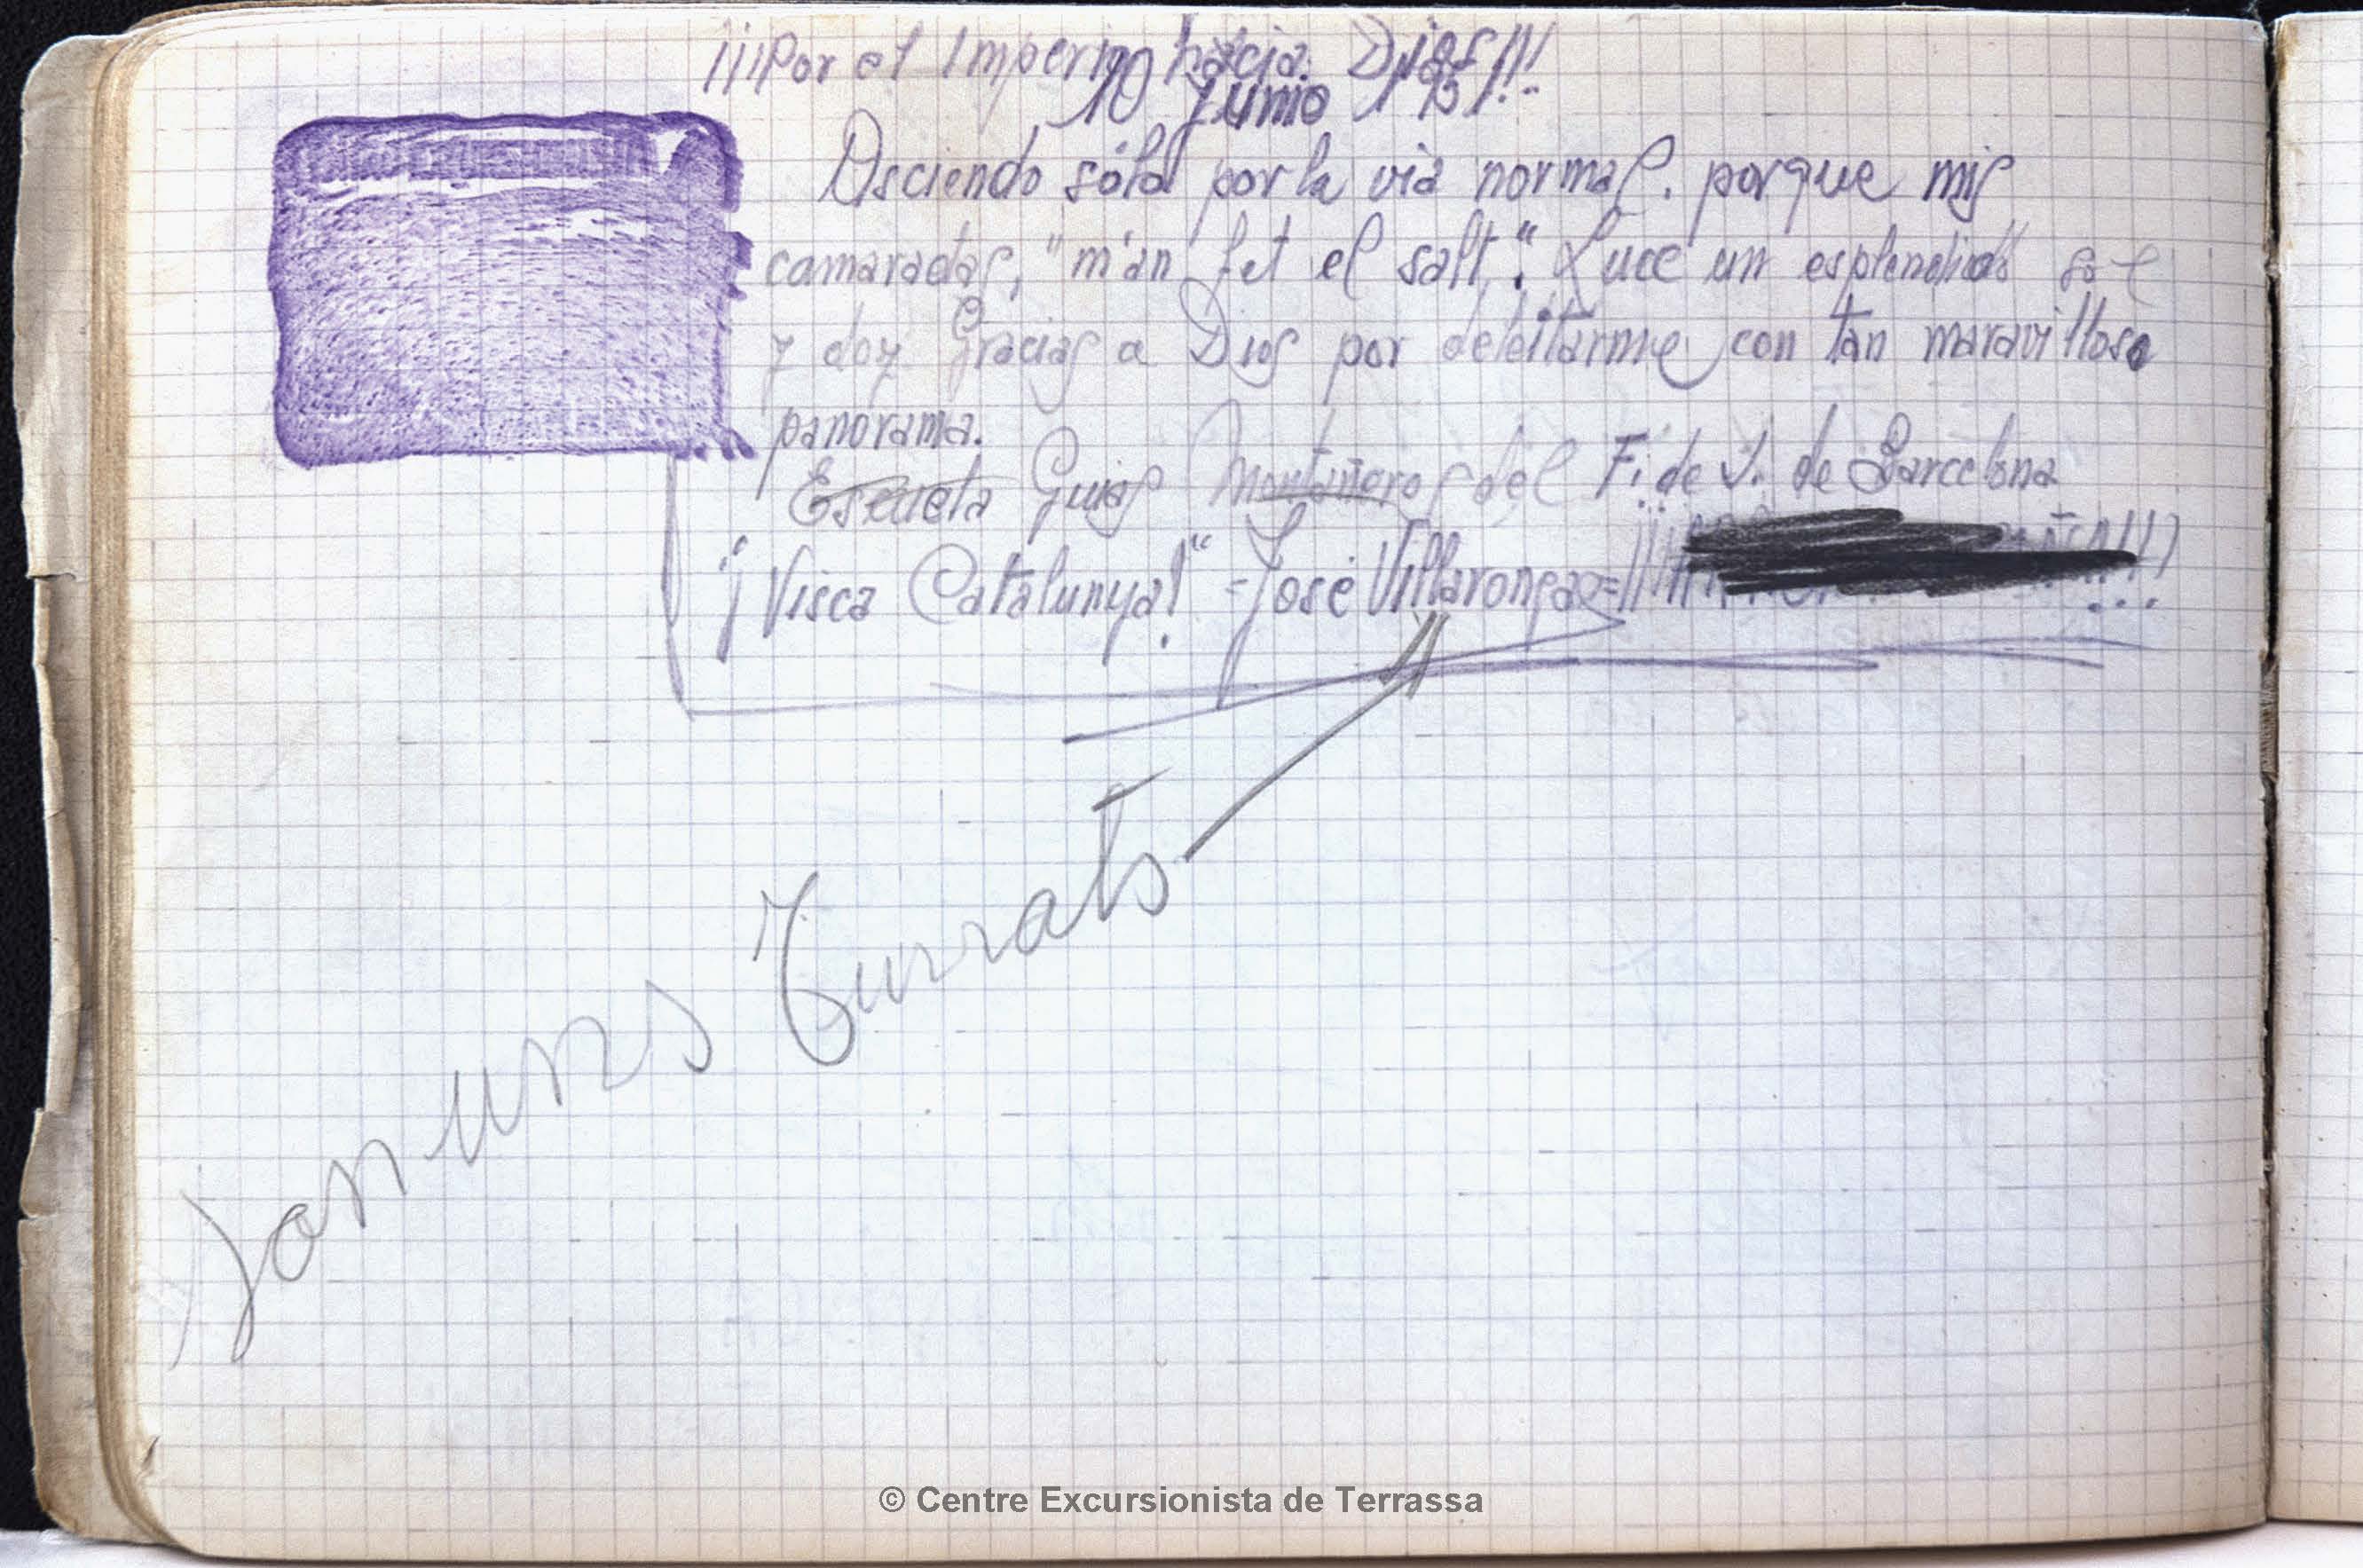 ¡¡¡Por el Imperio hacia Dios!!!
10 Junio 1951
Asciendo sólo por la via normal. porque mis
camaradas, "m'an fet el salt". Luce un esplendido sol
y doy Gracias a Dios por deleitarme con tan maravilloso
panorama.
Escuela Guias Montañeros del F. de J. de Barcelona
"¡Visca Catalunya!" =José Villaronga=
Son uns Turrats
© Centre Excursionista de Terrassa